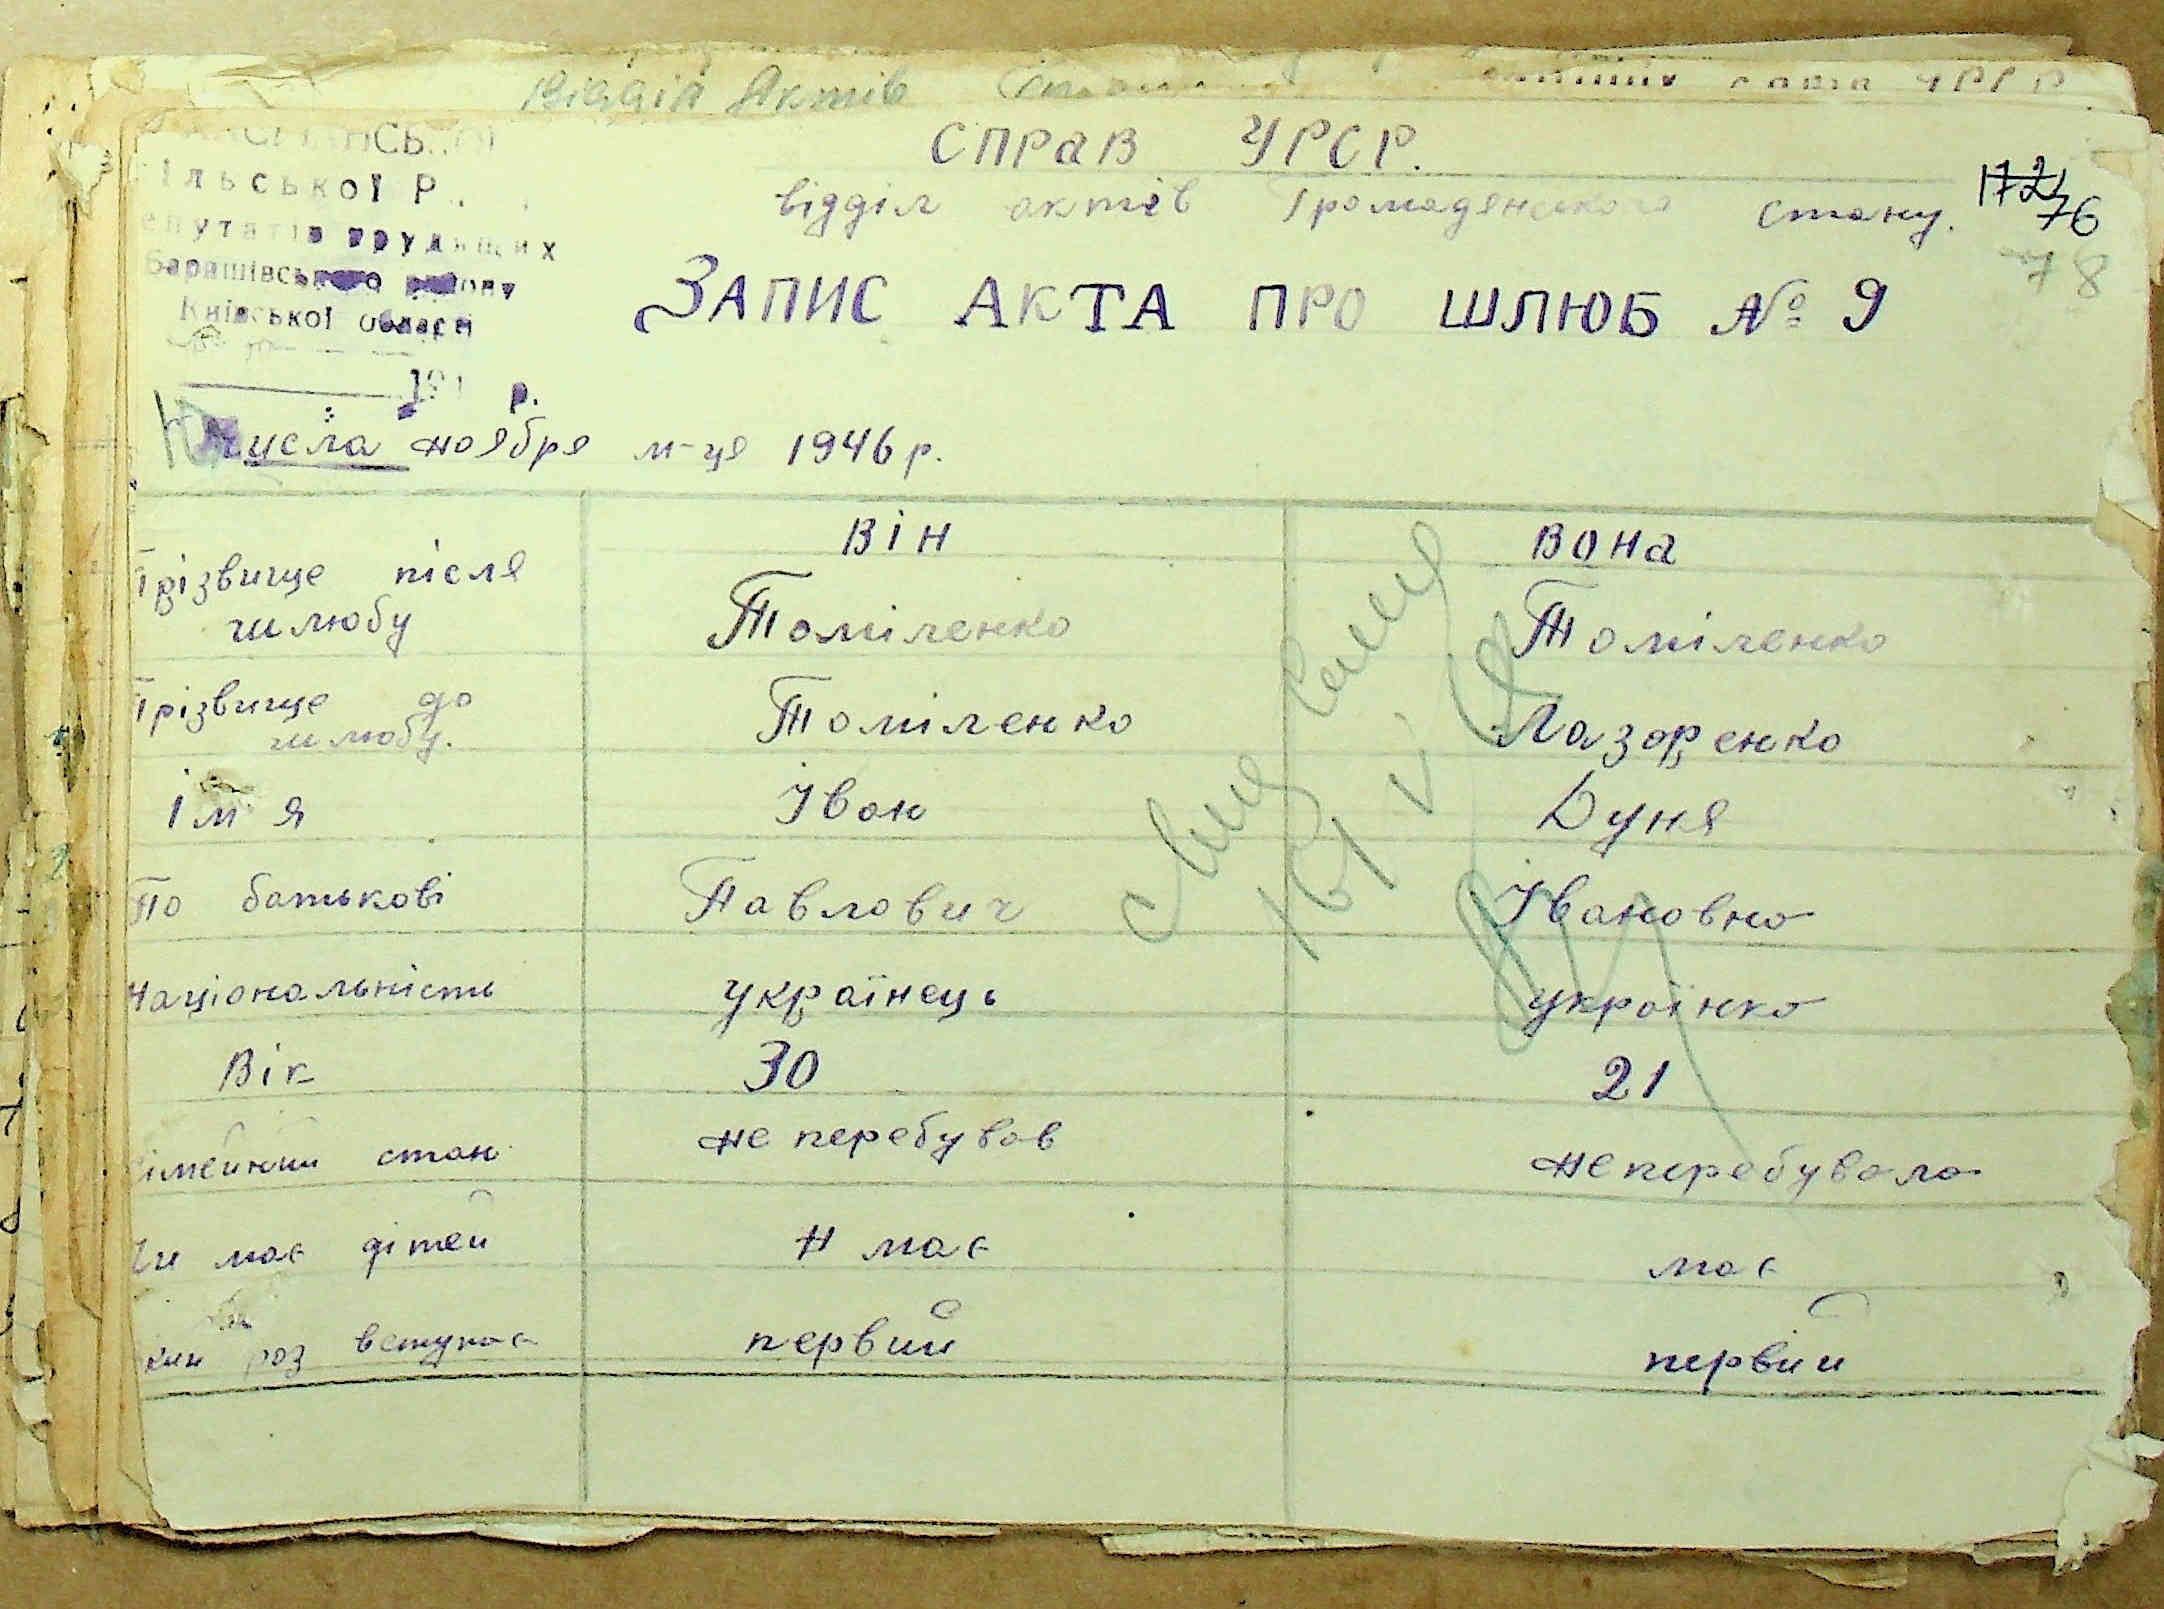 Відділ Актів
СПРаВ УРСР.
відділ актів Громадянського стану.
172 76
78
ільської Р
епутатів трудящих
Барашівського району
Київської області
19 р.
ЗАПИС АКТА ПРО ШЛЮБ № 9
числа ноября м-ця 1946 р.
ВІН ВОНа
Прізвище після шлюбу Томіленко Томіленко
Прізвище до шлюбу. Томіленко Лазоренко
Імя Іван Дуня
По батькові Павлович Івановна
Національність українець українка
Вік 30 21
сімейний стан не перебував не перебувала
Чи має дітей н має має
який раз вступає первий первий